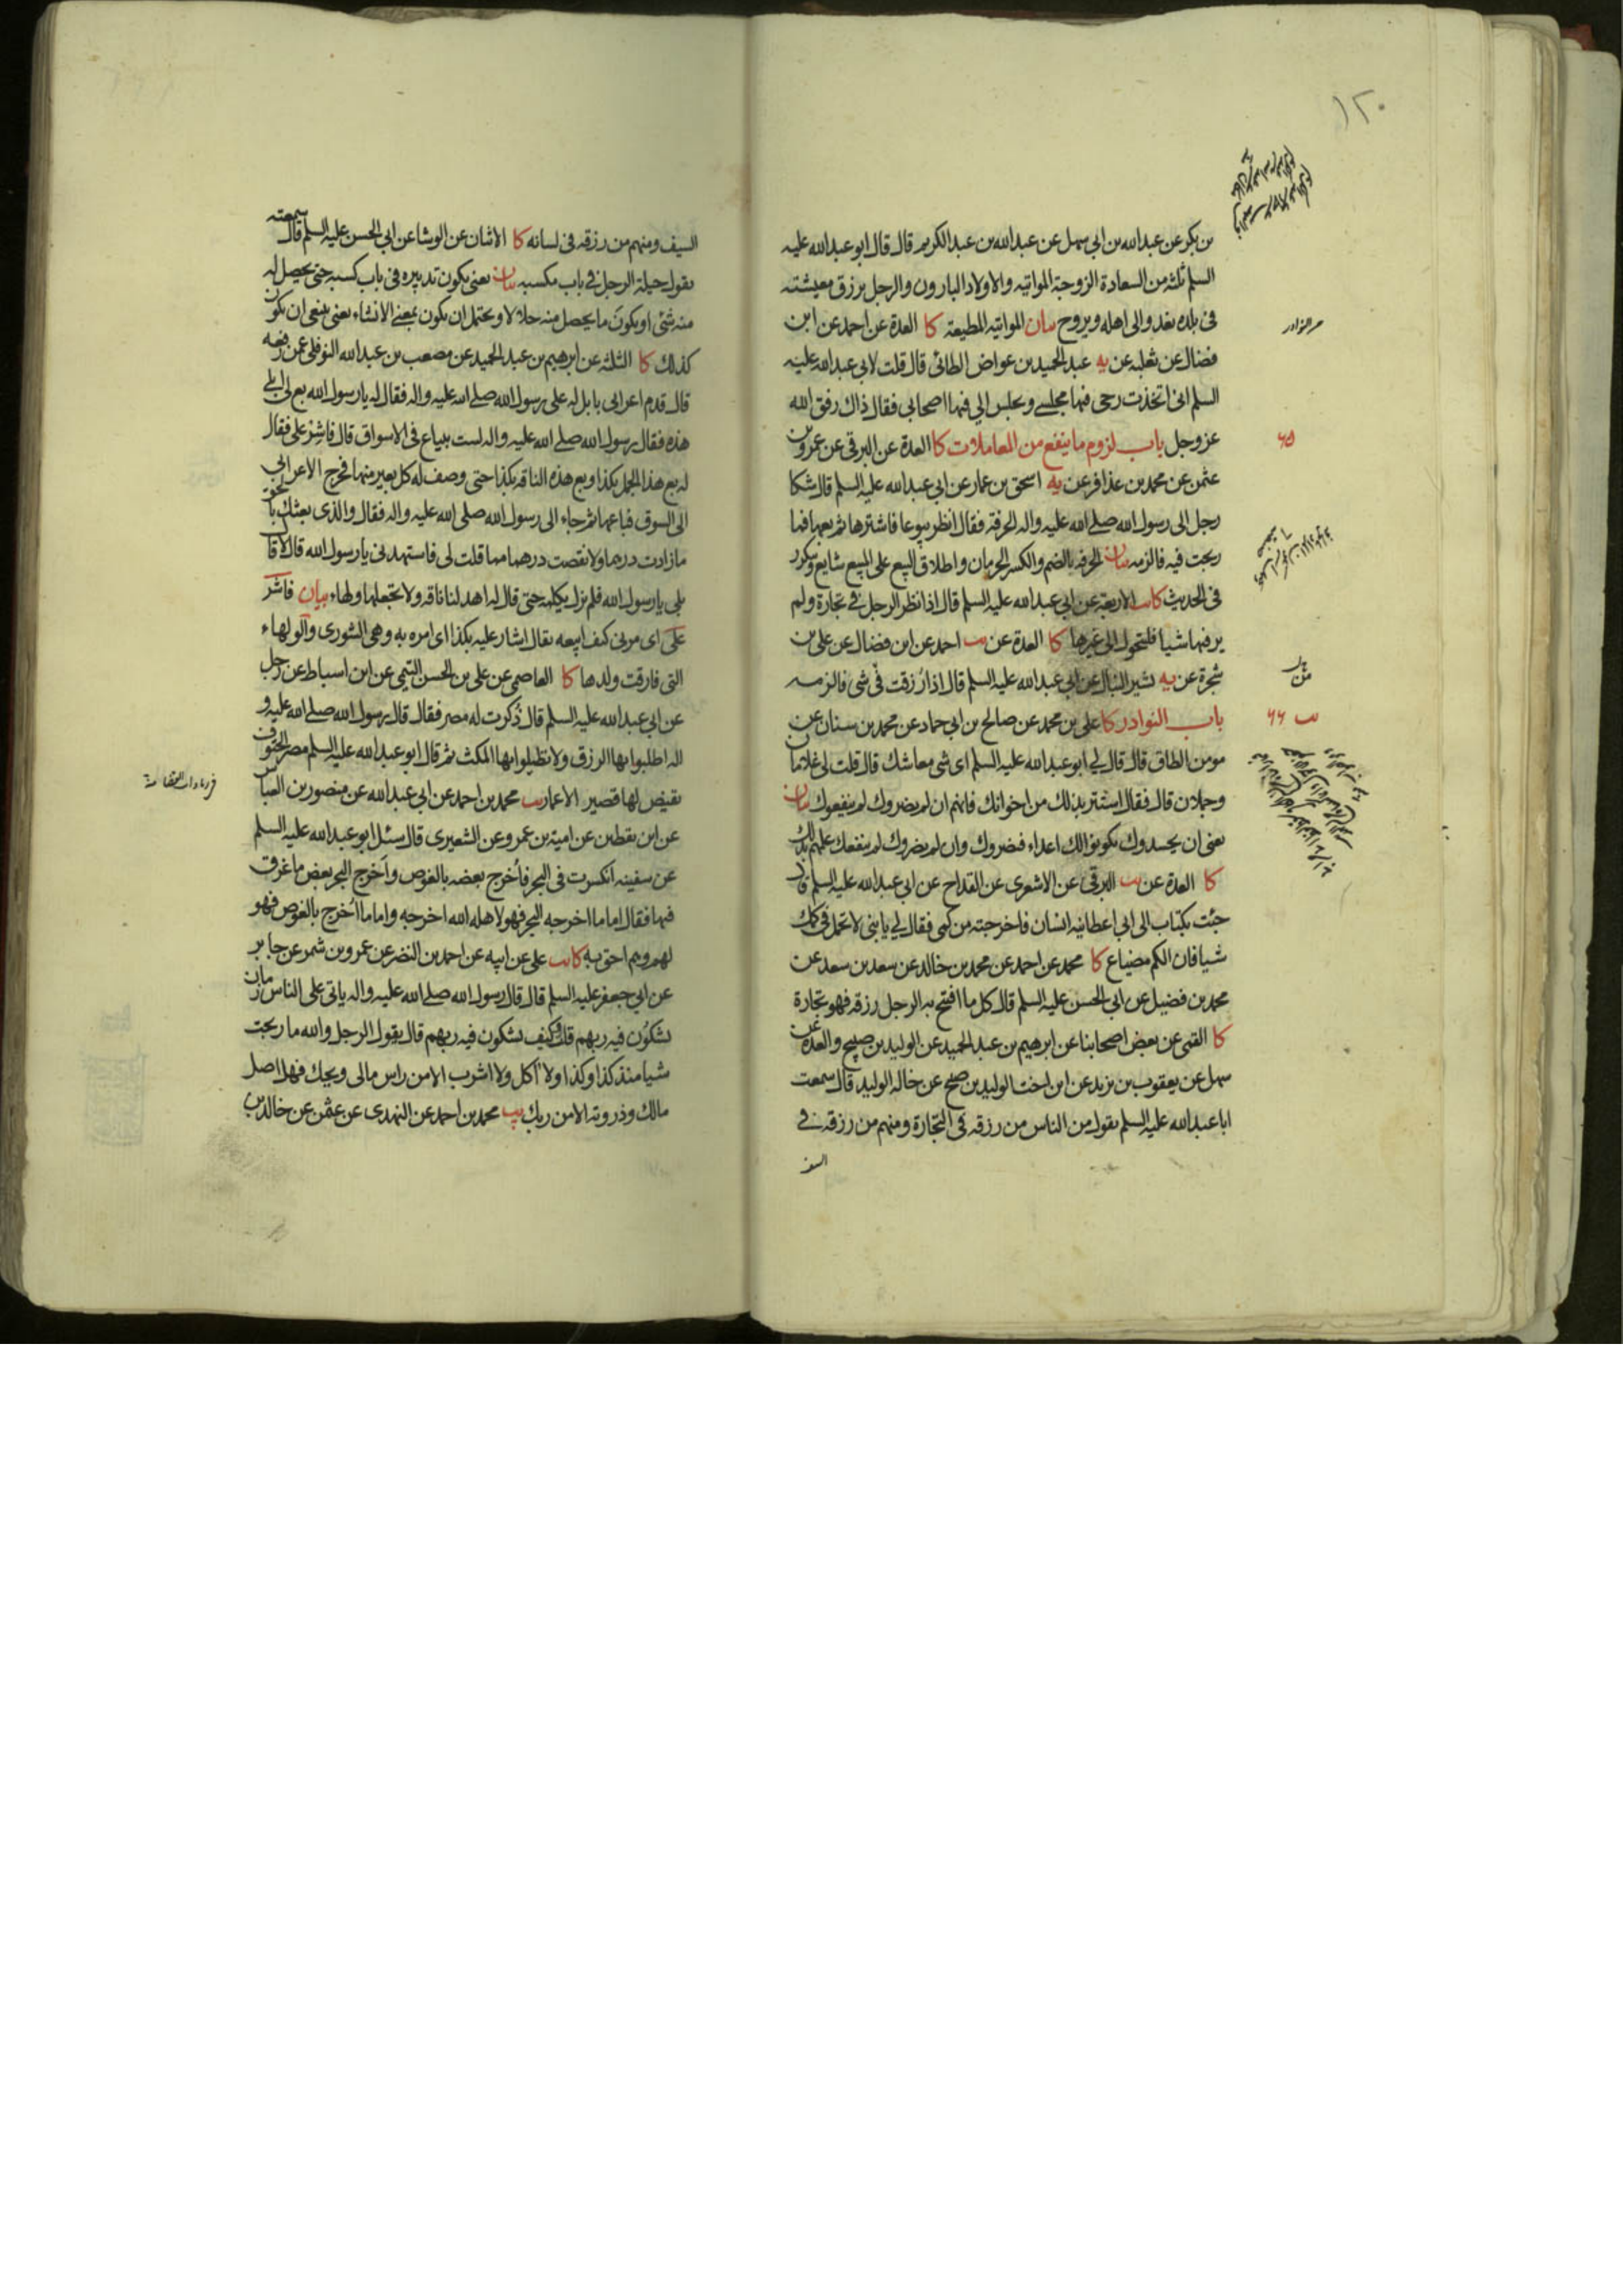 ١٢٠
بن بكر عن عبدالله بن ابي سهل عن عبدالله بن عبدالكريم قال قال ابو عبدالله عليه
السلم ثلثه من السعادة الزوجة المواتيه والاولاد البارون والرجل يرزق معيشته
في بلده يغدو الى اهله ويروح بيان المواتيه المطيعة كا العدة عن احمد عن ابن
فضال عن ثعلبه عن يه عبد الحميد بن عواض الطائي قال قلت لابي عبدالله عليه
السلم اني اتخذت رحى فيها مجلسي ويجلس الي فيها اصحابي فقال ذاك رفق الله
عز وجل باب لزوم ما ينفع من المعاملات كا العدة عن البرقي عن عمرو بن
٦٥
عثمن عن محمد بن عذافر عن يه اسحق بن عمار عن ابي عبدالله عليه السلم قال شكا
رجل الى رسول الله صلى الله عليه واله الحرفة فقال انظر بيوعا فاشترها ثم بعها فما
ربحت فيه فالزمه بيان الحرفه بالضم والكسر الحرمان واطلاق البيع على المبيع شايع وتكرر
في الحديث كا يب الاربعة عن ابي عبدالله عليه السلم قال اذا نظر الرجل في تجارة ولم
ير فيها شيا فليتحول الى غيرها كا العدة عن يب احمد عن ابن فضال عن علي بن
شجرة عن يه بشير النبال عن ابي عبدالله عليه السلم قال اذا رزقت في شي فالزمه
باب النوادر كا علي بن محمد عن صالح بن ابي حماد عن محمد بن سنان عن
٦٦
مومن الطاق قال قال لي ابو عبدالله عليه السلم اي شي معاشك قال قلت لي غلامان
وجملان قال فقال استتر بذلك من اخوانك فانهم ان لم يضروك لم ينفعوك بيان
يعني ان يحسدوك يكونوا لك اعداء فيضروك وان لم يضروك لم ينفعك علمهم بذلك
كا العدة عن يب البرقي عن الاشعري عن القداح عن ابي عبدالله عليه السلم قال
جئت بكتاب الى ابي اعطانيه انسان فاخرجته من كمي فقال لي يا بني لا تحمل في كمك
شيا فان الكم مضياع كا محمد عن احمد عن محمد بن خالد عن سعد بن سعد عن
محمد بن فضيل عن ابي الحسن عليه السلم قال كل ما افتتح به الرجل رزقه فهو تجارة
كا القمي عن بعض اصحابنا عن ابرهيم بن عبدالحميد عن الوليد بن صبيح والعدة عن
سهل عن يعقوب بن يزيد عن ابن اخت الوليد بن صبيح عن خاله الوليد قال سمعت
ابا عبدالله عليه السلم يقول من الناس من رزقه في التجارة ومنهم من رزقه في
السيف
السيف ومنهم من رزقه في لسانه كا الاثنان عن الوشا عن ابي الحسن عليه السلم قال سمعته
يقول حيلة الرجل في باب مكسبه بيان يعني يكون تدبيره في باب كسبه حتى يحصل له
منه شئ او يكون ما يحصل منه حلالا ويحتمل ان يكون بمعنى الانشاء يعني ينبغي ان يكون
كذلك كا الثلثه عن ابرهيم بن عبد الحميد عن مصعب بن عبدالله النوفلي عمن رفعه
قال قدم اعرابي بابل له على رسول الله صلى الله عليه واله فقال له يا رسول الله بع لي ابلي
هذه فقال رسول الله صلى الله عليه واله لست ببياع في الاسواق قال فاشر علي فقال
له بع هذا الجمل بكذا وبع هذه الناقه بكذا حتى وصف له كل بعير منها فخرج الاعرابي
الى السوق فباعها ثم جاء الى رسول الله صلى الله عليه واله فقال والذي بعثك بالحق
ما زادت درهما ولا نقصت درهما مما قلت لي فاستهدني يا رسول الله قال لا قال
بلى يا رسول الله فلم يزل يكلمه حتى قال له اهد لنا ناقه ولا تجعلها ولهاء بيان فاشر
علي اي مرني كيف ابيعه يقال اشار عليه بكذا اي امره به وهي الشورى والولهاء
التي فارقت ولدها كا العاصمي عن علي بن الحسن التيمي عن ابن اسباط عن رجل
عن ابي عبدالله عليه السلم قال ذكرت له مصر فقال قال رسول الله صلى الله عليه و
اله اطلبوا بها الرزق ولا تطيلوا بها المكث ثم قال ابو عبدالله عليه السلم مصر الحتوف
تقيض لها قصير الاعمار يب محمد بن احمد عن ابي عبدالله عن منصور بن العباس
عن ابن يقطين عن امية بن عمرو عن الشعيري قال سئل ابو عبدالله عليه السلم
عن سفينه انكسرت في البحر فأخرج بعضه بالغوص وأخرج البحر بعض ما غرق
فيها فقال اما ما اخرجه البحر فهو لاهله الله اخرجه واما ما أخرج بالغوص فهو
لهم وهم احق به كا يب علي عن ابيه عن احمد بن النضر عن عمرو بن شمر عن جابر
عن ابي جعفر عليه السلم قال قال رسول الله صلى الله عليه واله ياتي على الناس زمان
يشكون فيه ربهم قلت وكيف يشكون فيه ربهم قال يقول الرجل والله ما ربحت
شيا منذ كذا وكذا ولا آكل ولا اشرب الا من راس مالي ويحك فهل اصل
مالك وذروته الا من ربك يب محمد بن احمد عن النهدي عن عثمن عن خالد بن